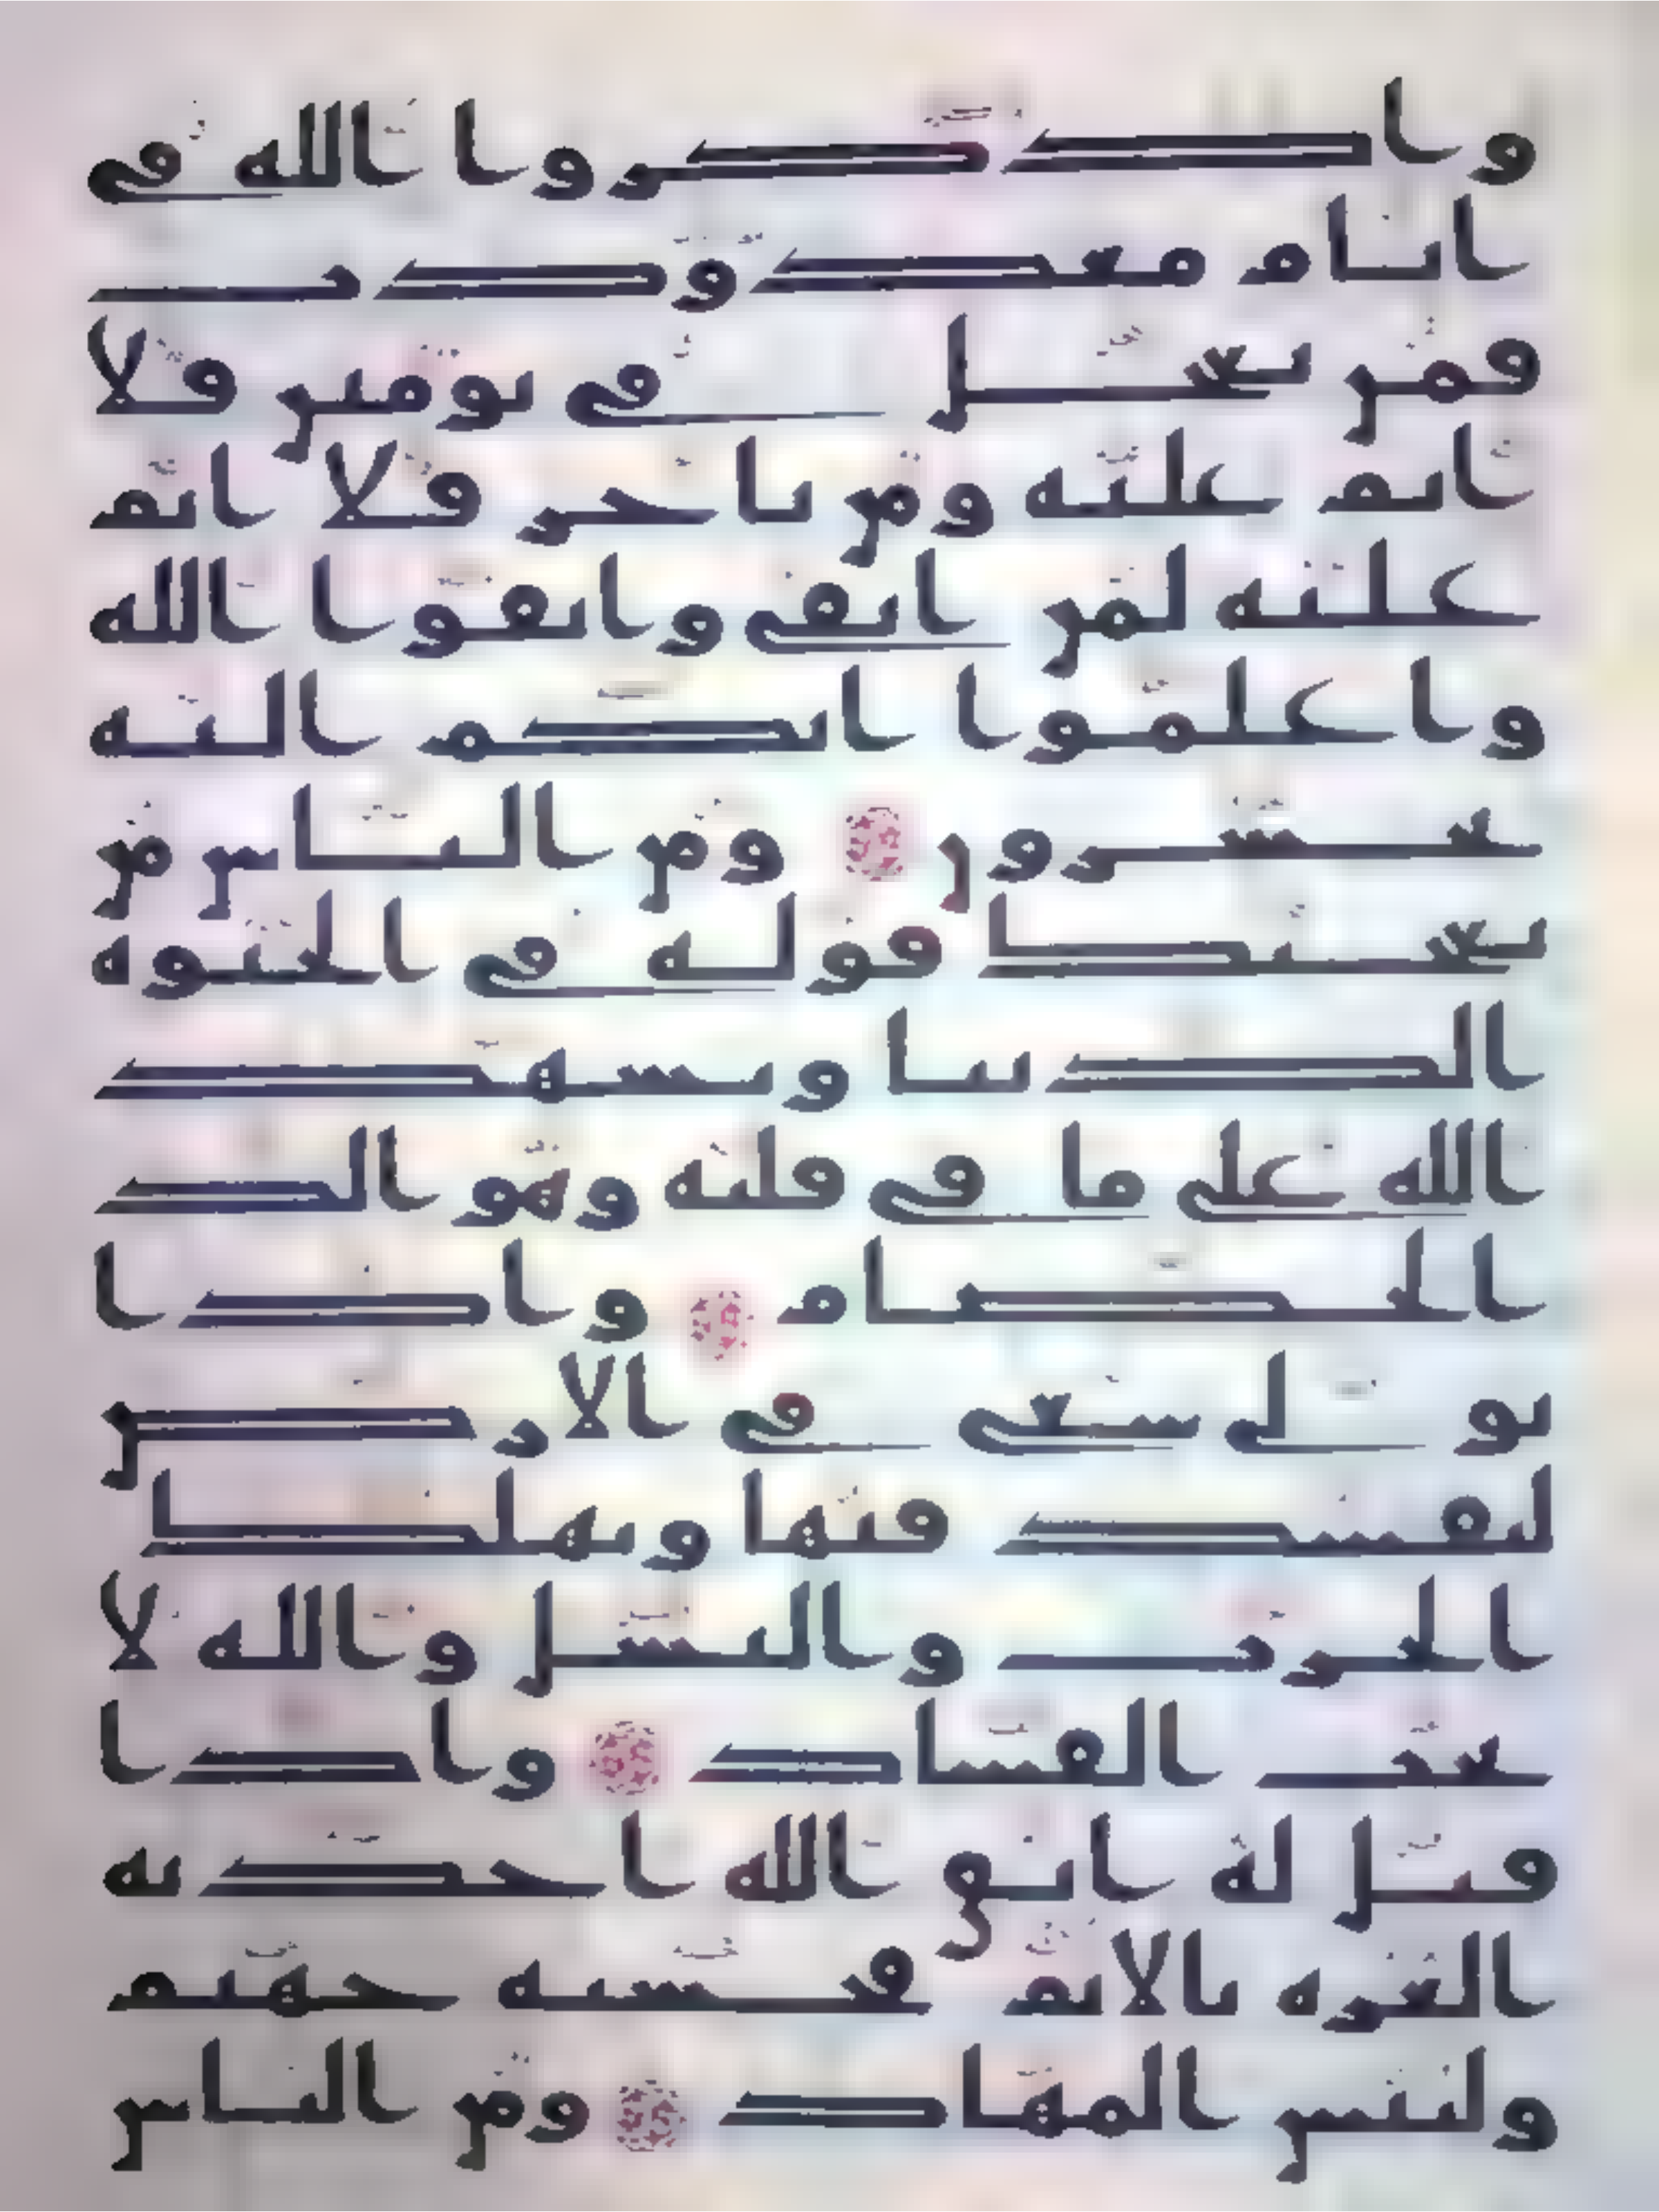 واذكروا الله في
ايام معدودت
فمن تعجل في يومين فلا
اثم عليه ومن تاخر فلا اثم
عليه لمن اتقى واتقوا الله
واعلموا انكم اليه
تحشرون ومن الناس من
يعجبك قوله في الحيوة
الدنيا ويشهد
الله على ما في قلبه وهو الد
الخصام واذا
تولى سعى في الارض
ليفسد فيها ويهلك
الحرث والنسل والله لا
يحب الفساد واذا
قيل له اتق الله اخذته
العزة بالاثم فحسبه جهنم
ولبئس المهاد ومن الناس